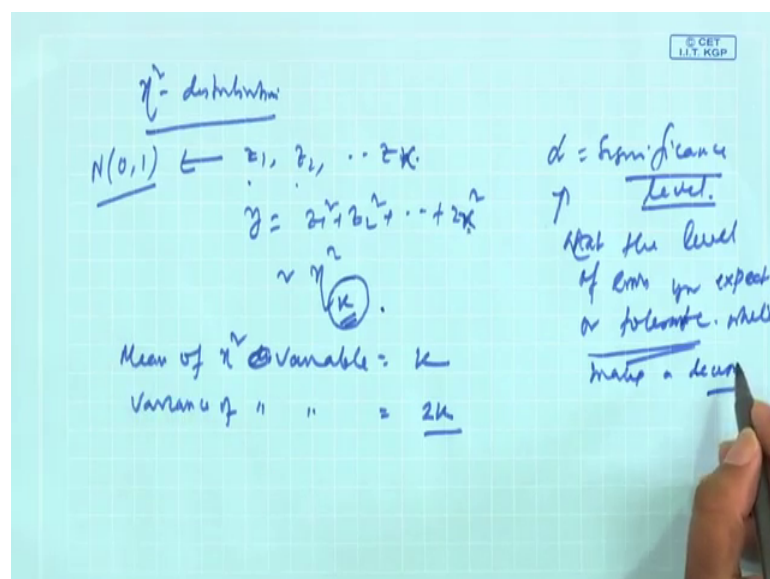 © CET
I.I.T. KGP
χ²- distribution
N(0,1) ← z₁, z₂, .. zₖ.
y = z₁²+z₂²+ .. + zₖ²
~ χ²ₖ.
Mean of χ² variable = k
Variance of " " = 2k
α = Significance
level.
↑
the level
of error you expect
or tolerate. while
make a decis